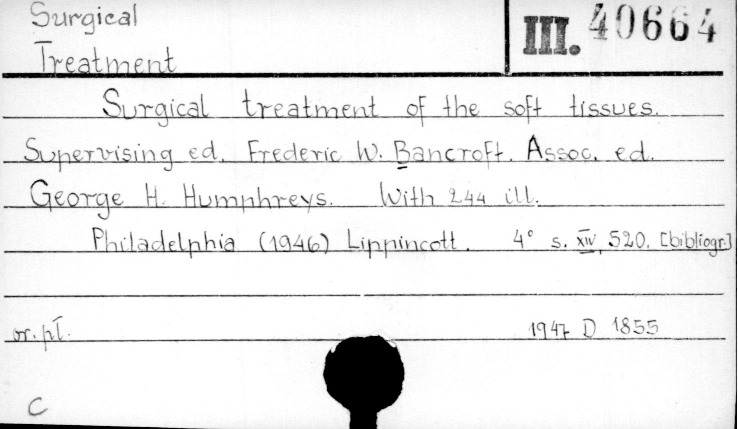 Surgical
III. 40664
Treatment
Surgical treatment of the soft tissues.
Supervising ed. Frederic W. Bancroft. Assoc. ed.
George H. Humphreys. With 244 ill.
Philadelphia (1946) Lippincott. 4° s. XIV, 520. [bibliogr.]
or. pł.
1947 D 1855
C